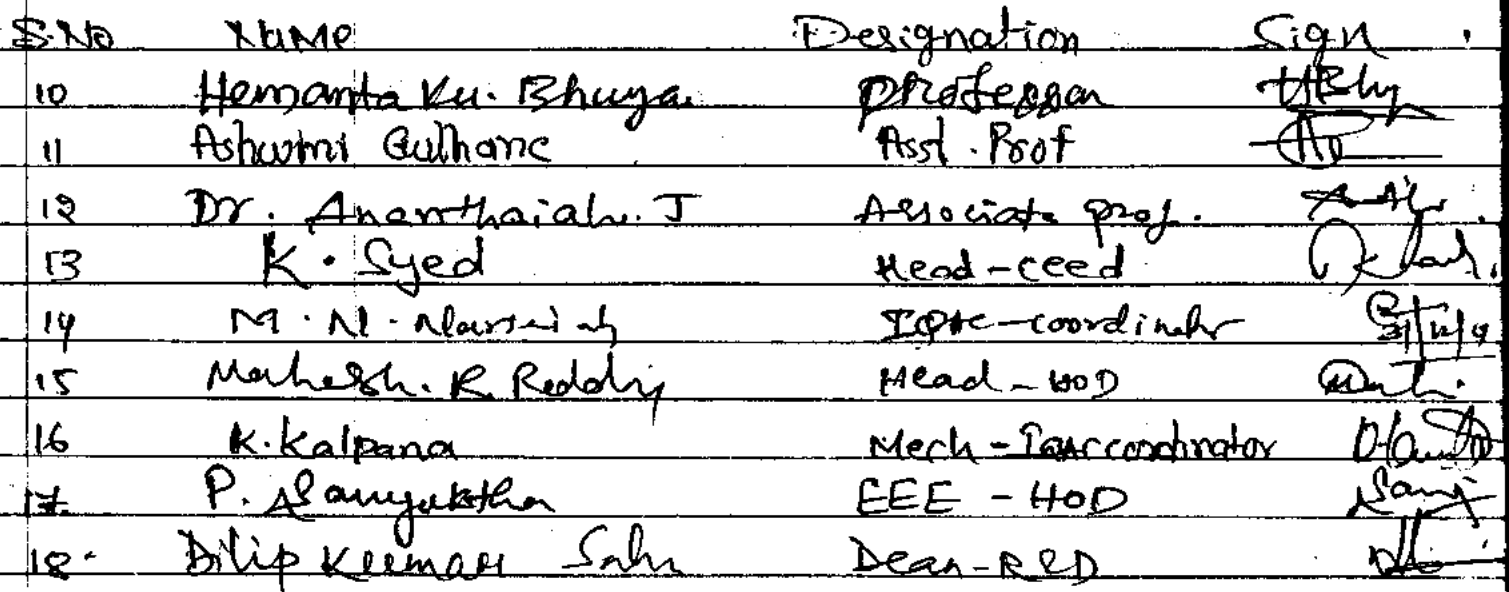 S.No Name Designation Sign
10 Hemanta Ku. Bhuya. Professor HBhy
11 Ashwini Gulhane Asst. Prof
12 Dr. Ananthaiah. J Associate prof.
13 K. Syed Head-ceed
14 M. N. Narsaiah IQAC-coordinator
15 Mahesh. R. Reddy Head-HOD
16 K. Kalpana Mech-IQAC coordinator
17. P. Sanyuktha EEE - HOD Sany
18- Dilip Kumar Sahu Dean-R&D